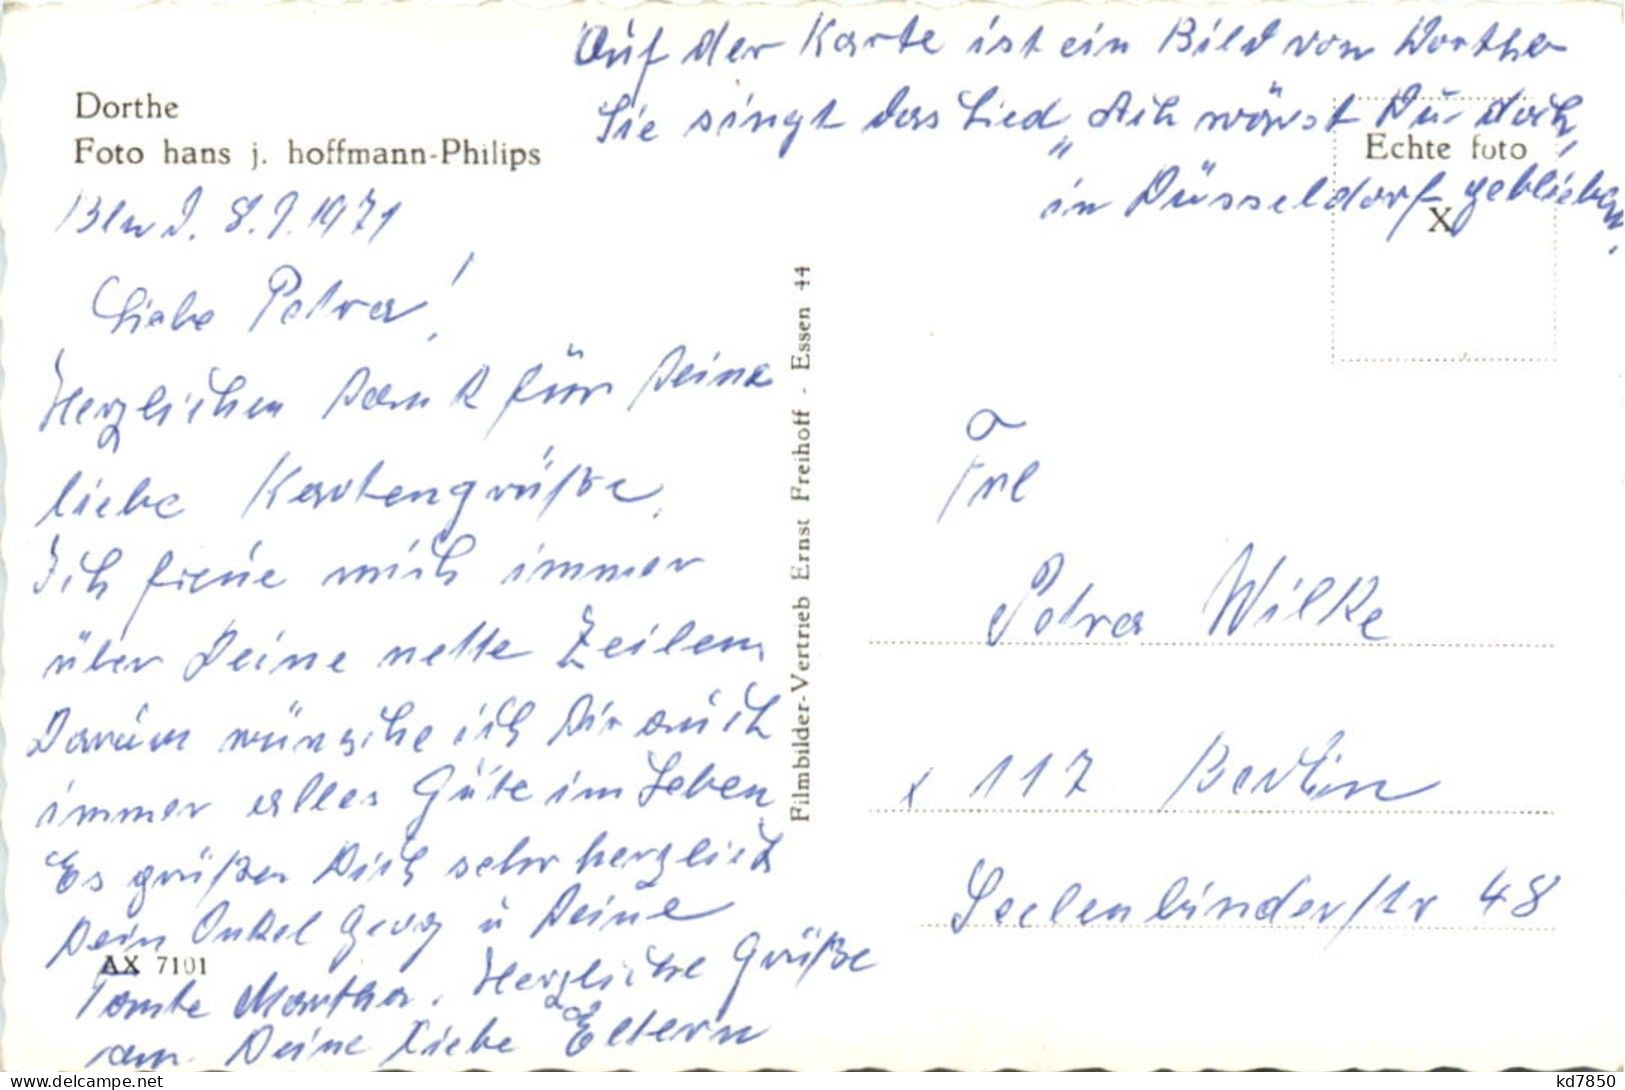 Auf der Karte ist ein Bild von Dorthe
Sie singt das Lied „Ach wärst Du doch
in Düsseldorf geblieben.
Dorthe
Foto hans j. hoffmann-Philips
Echte foto
X
Bln d. 8.7.1971
Liebe Petra!
Herzlichen Dank für Deine
liebe Kartengrüße.
Ich freue mich immer
über Deine nette Zeilen.
Darum wünsche ich Dir auch
immer alles Gute im Leben
Es grüßen Dich sehr herzlich
Dein Onkel Georg u Deine
Tante Martha. Herzliche Grüße
an Deine liebe Eltern
AX 7101
Filmbilder-Vertrieb Ernst Freihoff - Essen 44
Frl
Petra Wilke
x 117 Berlin
Seelenbinderstr 48
kd7850